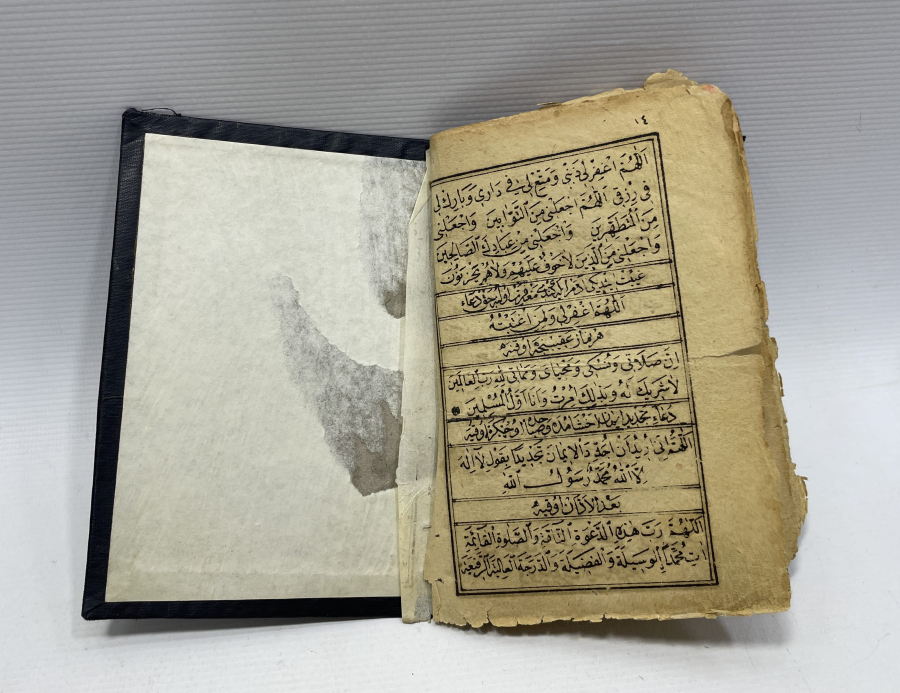 ١٤
اللهم اغفرلي ذنبي ووسع لي في داري وبارك لي
في رزقي اللهم اجعلني من التوابين واجعلني
من المتطهرين واجعلني من عبادك الصالحين
واجعلني من الذين لا خوف عليهم ولا هم يحزنون
دعاء
اللهم اغفرلي ولمن اغتبته
اوقيه
ان صلاتي ونسكي ومحياي ومماتي لله رب العالمين
لا شريك له وبذلك امرت وانا اول المسلمين
دعاء تجديد ايمان اوقيه
اللهم اني اريد ان اجدد الايمان تجديدا بقول لا اله
الا الله محمد رسول الله
بعد الاذان اوقيه
اللهم رب هذه الدعوة التامة والصلوة القائمة
ات محمدا الوسيلة والفضيلة والدرجة العالية الرفيعة